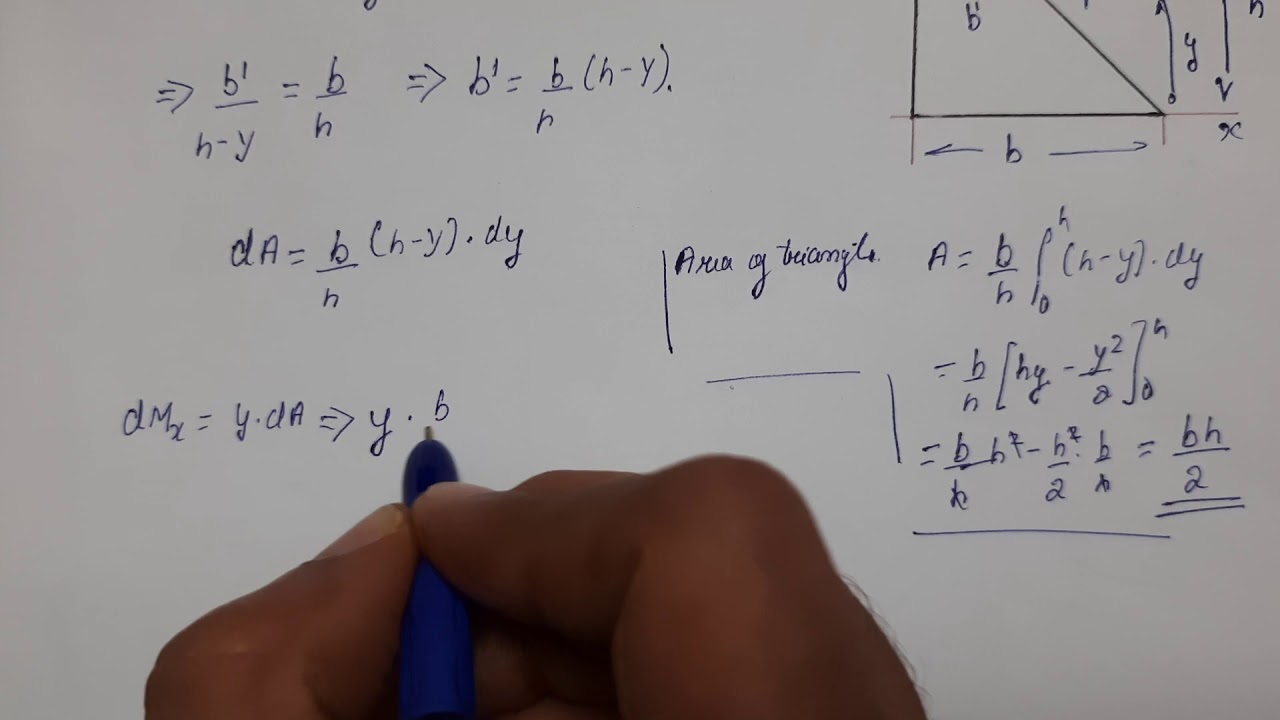 ⇒ b'/h-y = b/h ⇒ b' = b/h (h-y).
b'
y
h
x
b
dA = b/h (h-y). dy
Area of triangle. A = b/h ∫₀ʰ (h-y). dy
= b/h [hy - y²/2]₀ʰ
= b/h h² - h²/2 . b/h = bh/2
dMₓ = y.dA ⇒ y . b